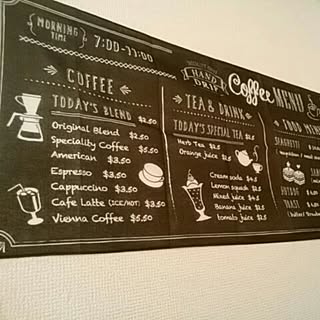 MORNING TIME
7:00-11:00
HAND DRIP
Coffee MENU
COFFEE
TODAY'S BLEND $2.50
Original Blend $2.50
Speciality Coffee $5.50
American $3.50
Espresso $3.50
Cappucino $3.50
Cafe Latte (ICE/HOT) $3.50
Vienna Coffee $5.50
TEA & DRINK
TODAY'S SPECIAL TEA $2.5
Herb Tea $2.5
Orange juice $2.5
Cream soda $2.5
Lemon squash $2.5
Mixed juice $2.5
Banana juice $2.5
tomato juice $2.5
FOOD MENU
SPAGHETTI
HOTDOG
TOAST